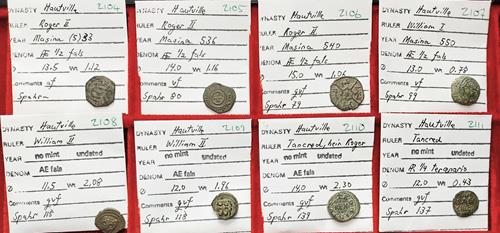 2104
DYNASTY Hautville
RULER Roger II
YEAR Masina (5)33
DENOM Æ 1/2 fals
13.5 WR 1.12
Comments vf
Spahr
2105
DYNASTY Hautville
RULER Roger II
YEAR Masina 536
DENOM Æ 1/2 fals
Ø 14.0 WR 1.16
Comments vf
Spahr 80
2106
DYNASTY Hautville
RULER Roger II
YEAR Masina 540
DENOM Æ 1/2 fals
Ø 15.0 WR 1.06
Comments gvf
Spahr 79
2107
DYNASTY Hautville
RULER William I
YEAR Masina 550
DENOM Æ 1/2 fals
Ø 13.0 WR 0.78
Comments vf
Spahr 99
2108
DYNASTY Hautville
RULER William II
YEAR no mint undated
DENOM AE fals
Ø 11.5 WR 2.08
Comments gvf
Spahr 118
DYNASTY Hautville
RULER William II
YEAR no mint undated
DENOM AE fals
Ø 12.0 WR 1.86
Comments gvf
Spahr 118
2110
DYNASTY Hautville
RULER Tancred, heir Roger
YEAR no mint undated
DENOM AE fals
Ø 14.0 WR 2.30
Comments gvf
Spahr 139
DYNASTY Hautville
RULER Tancred
YEAR no mint undated
DENOM 1/4 Ternaris
Ø 12.0 WR 0.43
Comments gvf
Spahr 137